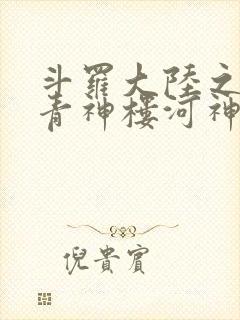 斗羅大陸之
青神樓河神
倪貴賓